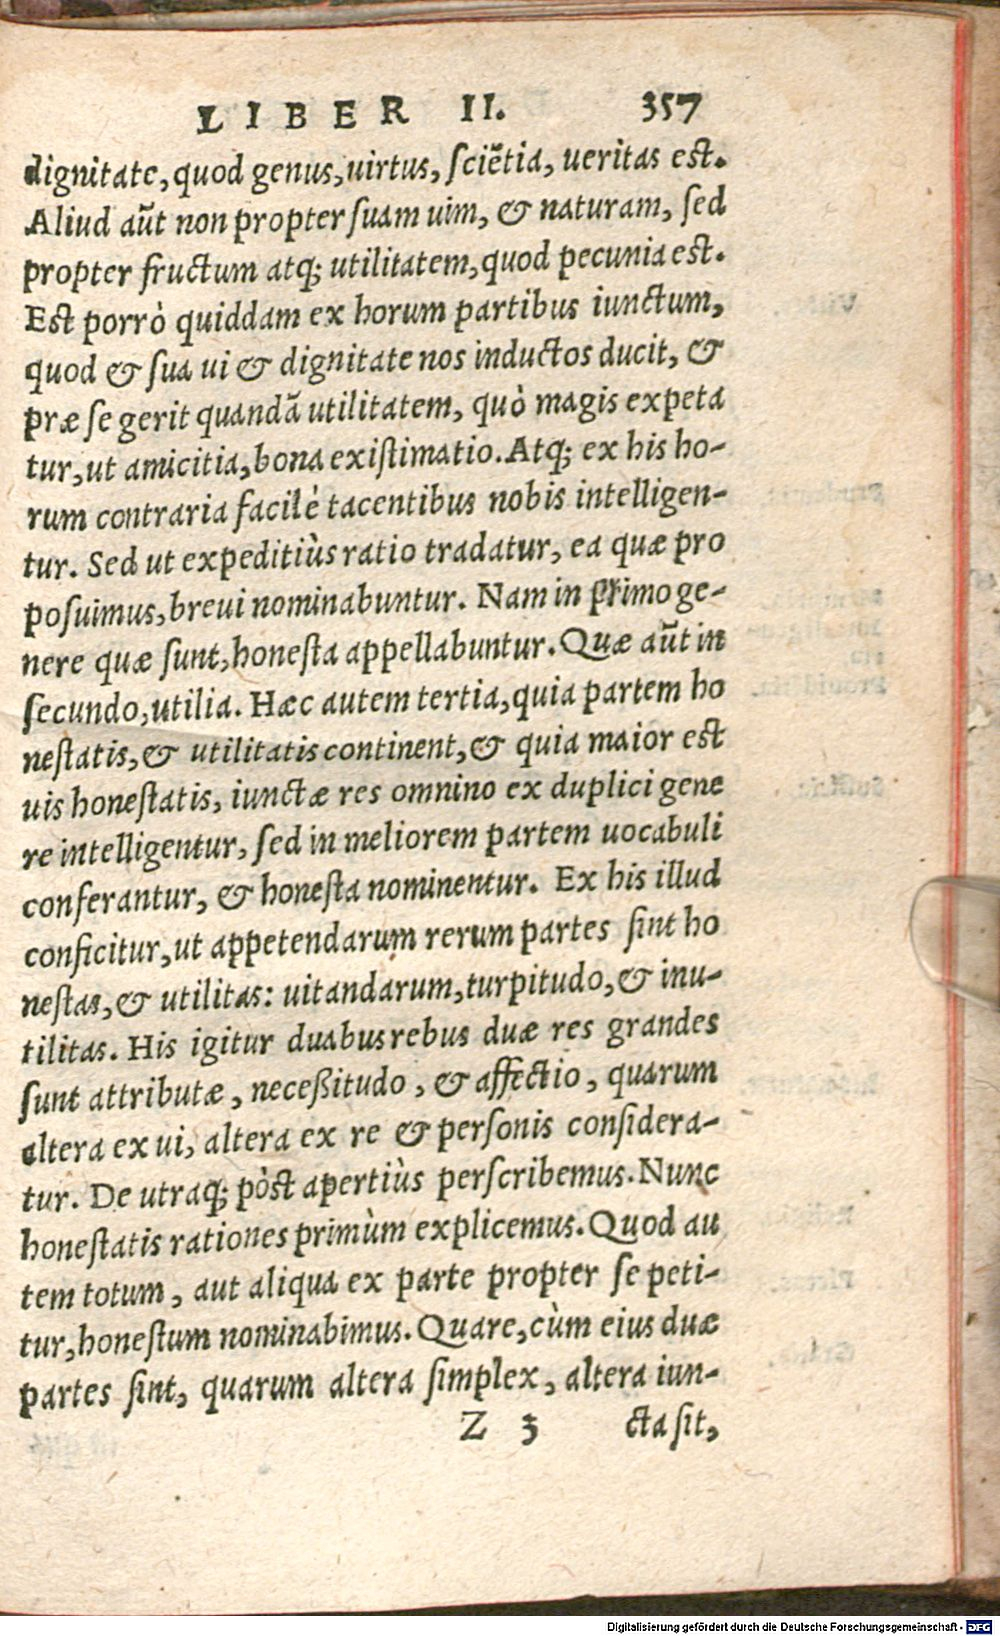 LIBER II. 357
dignitate, quod genus, uirtus, ſciẽtia, ueritas est.
Aliud aũt non propter ſuam uim, & naturam, ſed
propter fructum atq; utilitatem, quod pecunia est.
Est porrò quiddam ex horum partibus iunctum,
quod & ſua ui & dignitate nos inductos ducit, &
præ ſe gerit quandã utilitatem, quò magis expeta
tur, ut amicitia, bona exiſtimatio. Atq; ex his ho-
rum contraria facilè tacentibus nobis intelligen-
tur. Sed ut expeditiùs ratio tradatur, ea quæ pro
poſuimus, breui nominabuntur. Nam in primo ge-
nere quæ ſunt, honeſta appellabuntur. Quæ aũt in
ſecundo, utilia. Hæc autem tertia, quia partem ho
neſtatis, & utilitatis continent, & quia maior est
uis honeſtatis, iunctæ res omnino ex duplici gene
re intelligentur, ſed in meliorem partem uocabuli
conferantur, & honeſta nominentur. Ex his illud
conficitur, ut appetendarum rerum partes ſint ho
neſtas, & utilitas: uitandarum, turpitudo, & inu-
tilitas. His igitur duabus rebus duæ res grandes
ſunt attributæ, neceßitudo, & affectio, quarum
altera ex ui, altera ex re & perſonis conſidera-
tur. De utraq; pòst apertiùs perſcribemus. Nunc
honeſtatis rationes primùm explicemus. Quod au
tem totum, aut aliqua ex parte propter ſe peti-
tur, honeſtum nominabimus. Quare, cùm eius duæ
partes ſint, quarum altera ſimplex, altera iun-
Z 3 cta ſit,
Digitalisierung gefördert durch die Deutsche Forschungsgemeinschaft - DFG